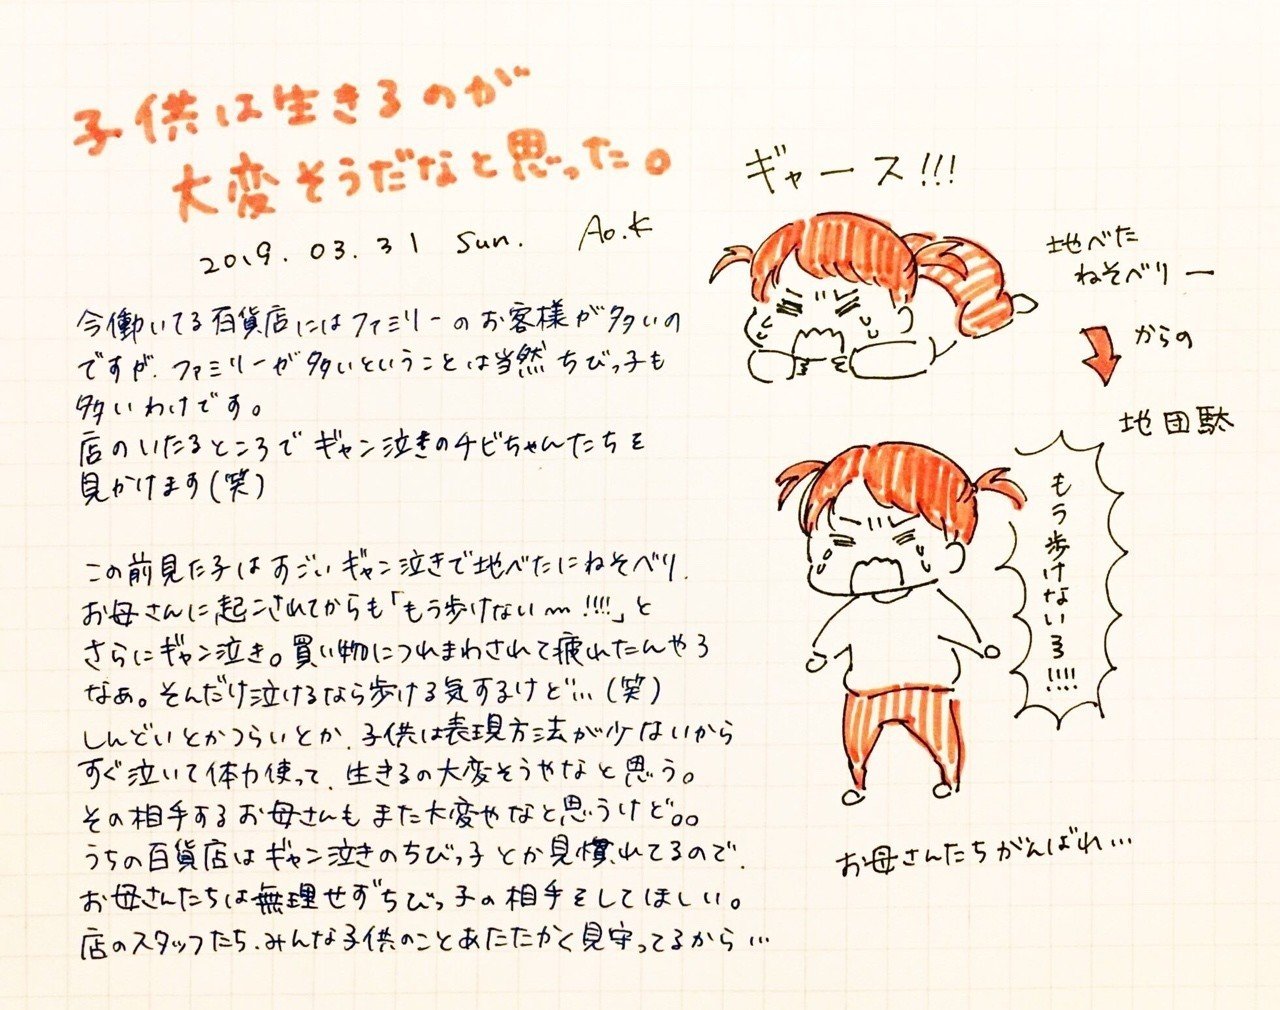 子供は生きるのが
大変そうだなと思った。
2019.03.31 Sun. Ao.K
今働いてる百貨店にはファミリーのお客様が多いの
ですが、ファミリーが多いということは当然ちびっ子も
多いわけです。
店のいたるところでギャン泣きのチビちゃんたちを
見かけます(笑)
この前見た子はすごいギャン泣きで地べたにねそべり、
お母さんに起こされてからも「もう歩けない〜!!!!」と
さらにギャン泣き。買い物につれまわされて疲れたんやろ
なぁ。そんだけ泣けるなら歩ける気するけど…(笑)
しんどいとかつらいとか、子供は表現方法が少ないから
すぐ泣いて体力使って、生きるの大変そうやなと思う。
その相手するお母さんもまた大変やなと思うけど。。
うちの百貨店はギャン泣きのちびっ子とか見慣れてるので、
お母さんたちは無理せずちびっ子の相手をしてほしい。
店のスタッフたち、みんな子供のことあたたかく見守ってるから…
ギャース!!!
地べた
ねそべりー
からの
地団駄
もう歩けないろ!!!!
お母さんたちがんばれ…